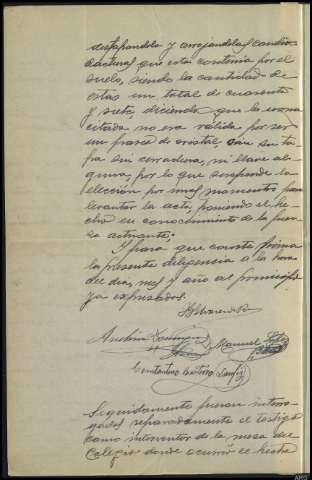 destapandola y arrojandola, candida
daturas que esta contenia por el
suelo, siendo la cantidad de
estas un total de cuarenta
y siete, diciendo que la urna
citada no era valida por ser
un frasco de cristal, con su ta-
pa sin cerradura, ni llave al-
guna, por lo que suspende la
elección por unos momentos para
levantar la acta, poniendo el he-
cho en conocimiento de la fuer-
za actuante.
Y para que conste firma
la presente diligencia a la hora
del dia, mes y año al principio
ya expresados.
Manuel
Seguidamente fueron interro-
gados separadamente el testigo
como interventor de la mesa del
Colegio donde ocurrió el hecho
ARG